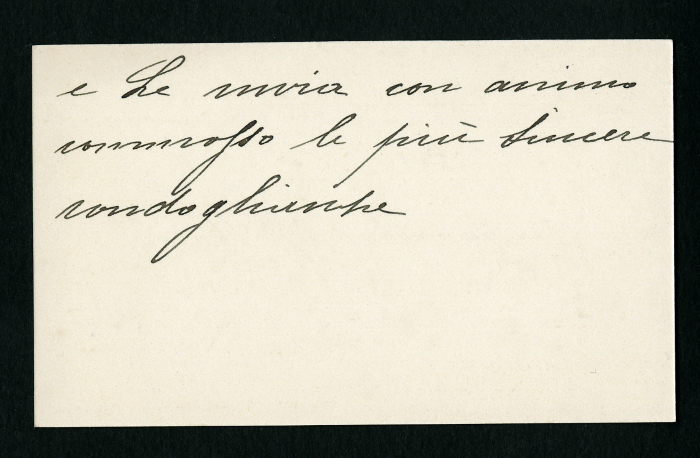 e Le invia con animo
commosso le più sincere
condoglianze